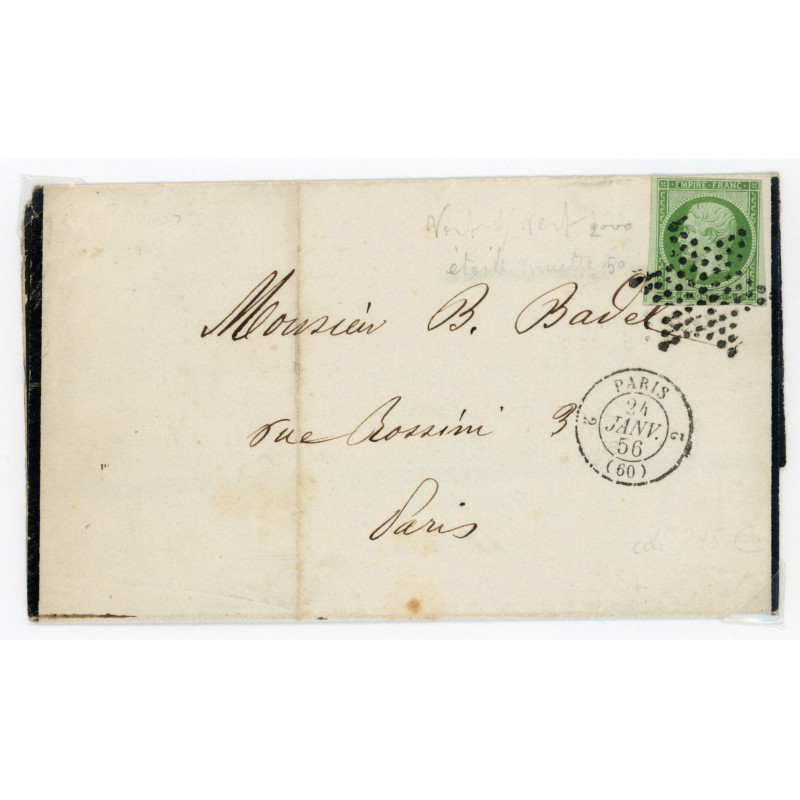 EMPIRE FRANC
Vert s/ Vert 2000
étoile muette 50
Monsieur B. Badel
rue Rossini 3
Paris
PARIS
24
JANV.
56
(60)
2 2